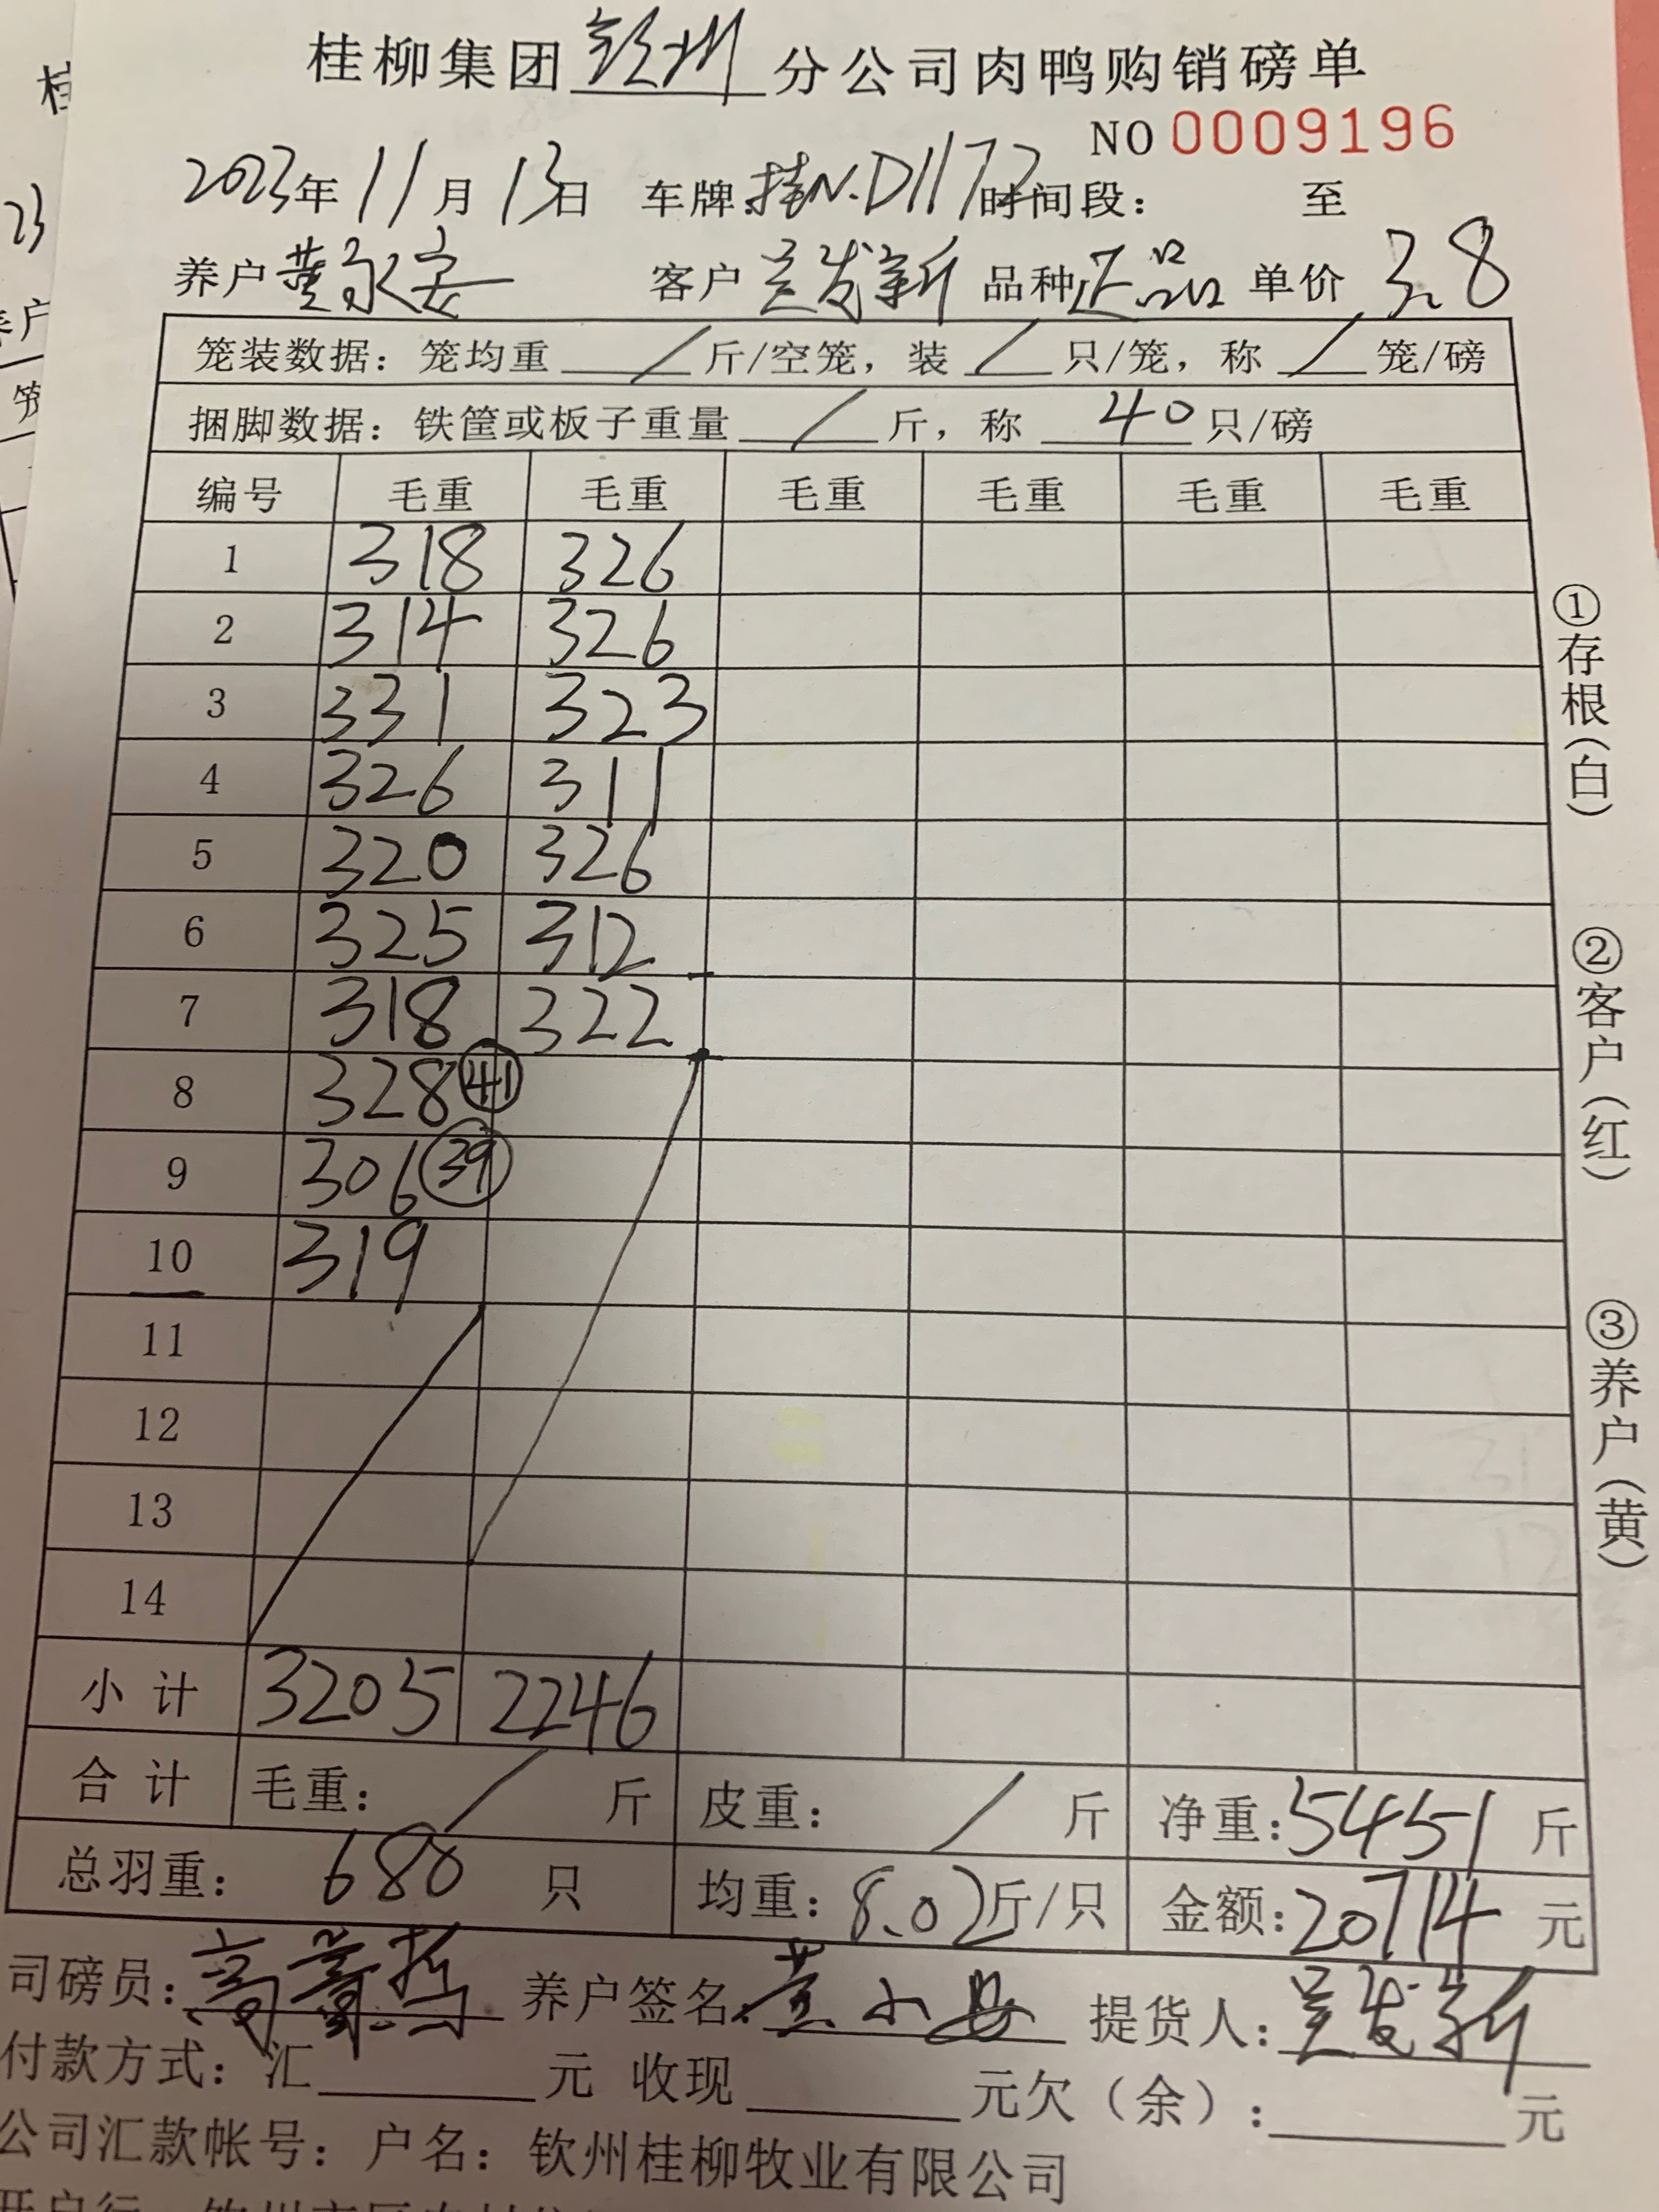 桂柳集团钦州分公司肉鸭购销磅单
NO 0009196
2023年11月13日 车牌:桂N.D1172 时间段: 至
养户 黄永宏 客户 兰发新 品种 正品 单价 3.8
笼装数据:笼均重 / 斤/空笼,装 / 只/笼,称 / 笼/磅
捆脚数据:铁筐或板子重量 / 斤,称 40 只/磅
编号 毛重 毛重 毛重 毛重 毛重 毛重
1 318 326
2 314 326
3 331 323
4 326 311
5 320 326
6 325 312
7 318 322
8 328 41
9 306 39
10 319
11
12
13
14
小计 3205 2246
合计 毛重: / 斤 皮重: / 斤 净重:5451斤
总羽重: 680 只 均重:8.02斤/只 金额:20714元
司磅员: 养户签名: 黄 提货人:兰发新
付款方式:汇 元 收现 元欠(余): 元
公司汇款帐号:户名:钦州桂柳牧业有限公司
①存根(白)
②客户(红)
③养户(黄)
23